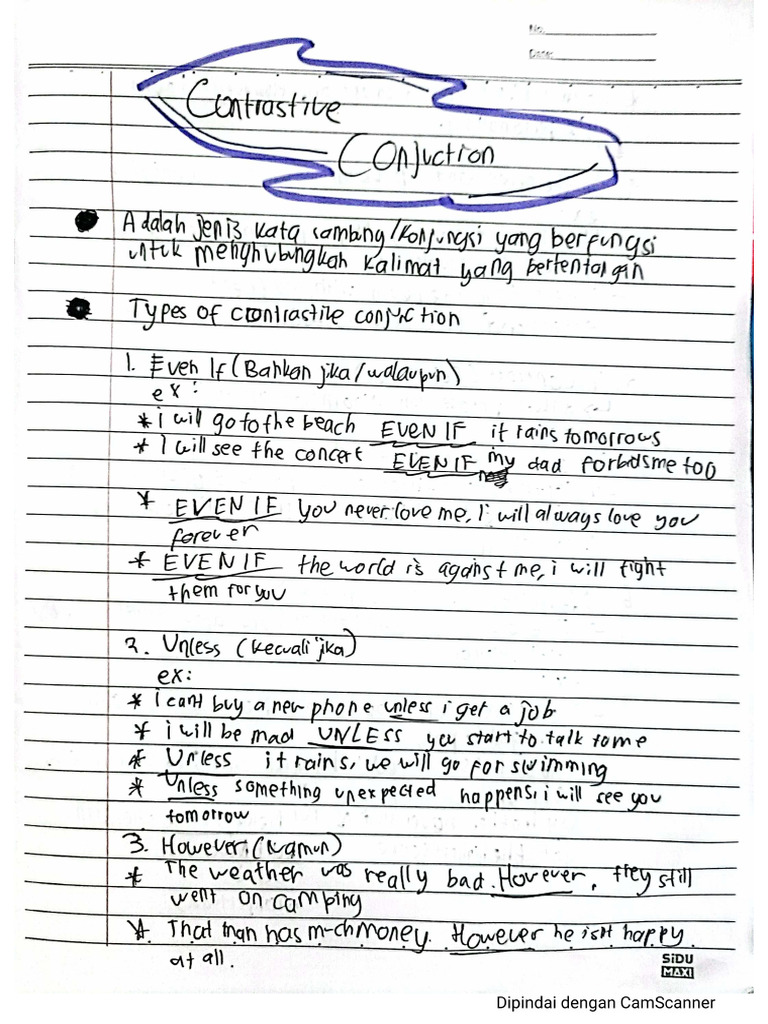 No:
Date:
Contrastive
Conjuction
Adalah jenis kata sambung/konjungsi yang berfungsi
untuk menghubungkah kalimat yang bertentangan
Types of contrastive conjuction
1. Even If (Bahkan jika/walaupun)
ex:
* i will go to the beach EVEN IF it rains tomorrows
* I will see the concert EVEN IF my dad forbids me too
* EVEN IF you never love me, I will always love you
forever
* EVEN IF the world is against me, i will fight
them for you
2. Unless (kecuali jika)
ex:
* i cant buy a new phone unless i get a job
* i will be mad UNLESS you start to talk to me
* Unless it rains, we will go for swimming
* Unless something unexpected happens, i will see you
tomorrow
3. However: (Namun)
* The weather was really bad. However, they still
went on camping
* That man has much money. However he isnt happy
at all.
SiDU
MAXI
Dipindai dengan CamScanner